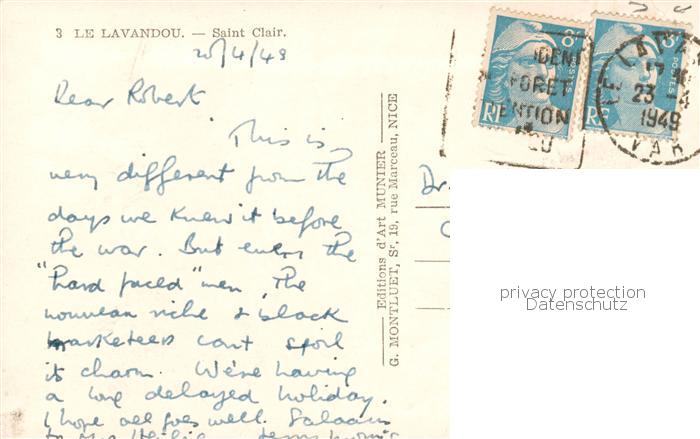 3 LE LAVANDOU. — Saint Clair.
20/4/49
Dear Robert
This is
very different from the
days we knew it before
the war. But even the
"hard faced" men, the
nouveau riche & black
marketeers can't spoil
its charm. We're having
a long delayed holiday.
I hope all goes well. Salaams
to Mrs
Editions d'Art MUNIER
G. MONTLUET, Sr, 19, rue Marceau, NICE
Dr.
8F
POSTES
RF
8F
POSTES
RF
FORET
LE LAVANDOU
23 -4
1949
VAR
privacy protection
Datenschutz